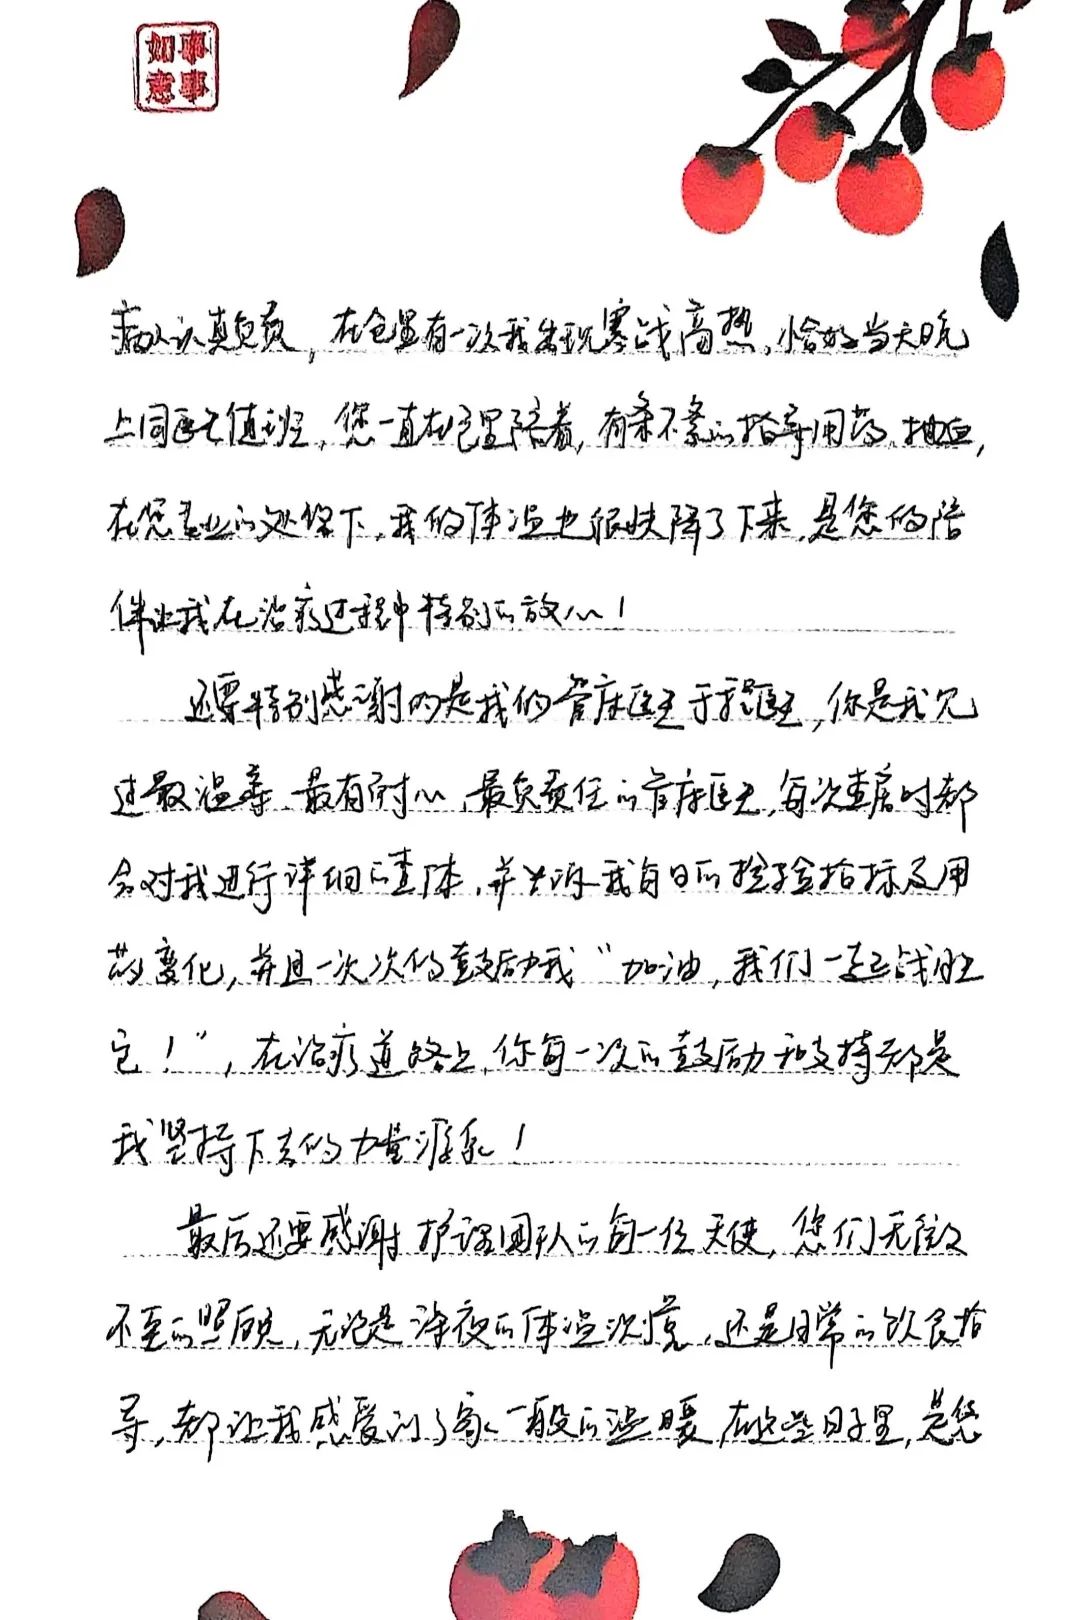 事事如意
病人认真负责，在仓里有一次我出现寒战高热，恰好当天晚
上闫医生值班，您一直在仓里陪着，有条不紊的指导用药、抽血，
在您专业的处理下，我的体温也很快降了下来，是您的陪
伴让我在治疗过程中特别的放心！
还要特别感谢的是我的管床医生于程医生，你是我见
过最温柔、最有耐心、最负责任的管床医生，每次查房时都
会对我进行详细的查体，并告诉我每日的检验指标及用
药变化，并且一次次的鼓励我“加油，我们一起战胜
它！”，在治疗道路上，你每一次的鼓励和支持都是
我坚持下去的力量源泉！
最后还要感谢护理团队的每一位天使，您们无微
不至的照顾，无论是深夜的体温测量，还是日常的饮食指
导，都让我感受到了家一般的温暖，在这些日子里，是您